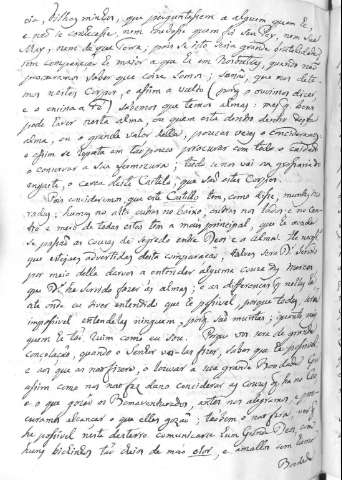 não, filhas minhas, que perguntassem a alguem quem he,
e não se conhecesse, nem soubesse quem foi seu Pay, nem sua
May, nem de que Terra, pois se isto seria grande bestialidade
sem comparação he maior a que há em nós outras, quando não
procuramos saber que coisa somos, senão, que nos dete
mos nestes Corpos, e assim a vulto (porq. o ouvimos dizer
e o ensina a Fé) sabemos que temos almas; mas q. bens
pode haver nesta alma, ou quem está dentro desta
alma, ou o grande valor della, poucas vezes o consideramos
e assim se tem em tão pouco procurar com todo o cuidado
conservar a sua fermozura; tudo se nos vai na grosaria do
engaste, e cerca deste Castelo, que são estes Corpos.
Pois consideremos, que este Castello tem, como disse, muitas mo
radas, humas no alto, outras no baixo, outras nos lados, e no cen
tro e meio de todas estas tem a mais principal, que he aonde
se passão as couzas de segredo entre Deos, e a alma. He neces
que estejais advertidas desta comparação; talvez será Ds. servido
por meio della darvos a entender alguma couza das merces
que Ds. he servido fazer ás almas; e as differenças q. nellas há
até onde eu tiver entendido que he possivel, porque todas será
impossivel entendelas ninguem, pois são muitas; quanto mais
quem he tão ruim como eu sou. Porque vos será de grande
consolação, quando o Senhor vo-las fizer, saber que he possivel
e aos que as não fizer, o louvar a sua grande Bondade. Que
assim como nos não faz dano considerar as couzas q. ha no Ceo
e o que gozão os Bemaventurados, antes nos alegramos, e pro-
curamos alcançar o que elles gozão; tambem o não fará ver q.
he possivel neste desterro comunicarse hum Grande Deos, com
huns bichinhos tão cheios de mao olor, e amallos sem
Bondade